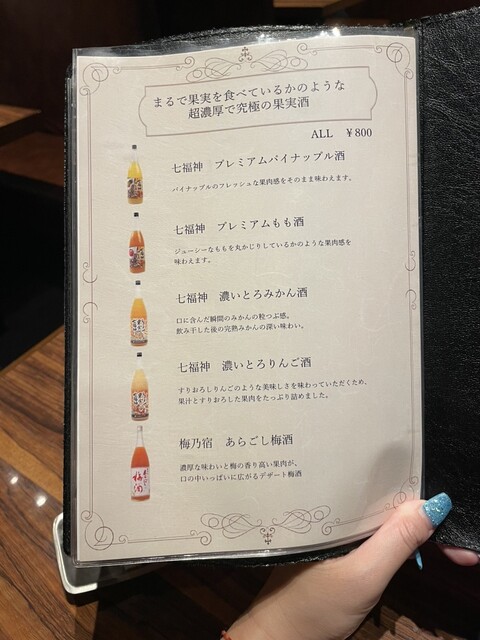 まるで果実を食べているかのような
超濃厚で究極の果実酒
ALL ¥800
七福神 プレミアムパイナップル酒
パイナップルのフレッシュな果肉感をそのまま味わえます。
七福神 プレミアムもも酒
ジューシーなももを丸かじりしているかのような果肉感を
味わえます。
七福神 濃いとろみかん酒
口に含んだ瞬間のみかんの粒つぶ感。
飲み干した後の完熟みかんの深い味わい。
七福神 濃いとろりんご酒
すりおろしりんごのような美味しさを味わっていただくため、
果汁とすりおろした果肉をたっぷり詰めました。
梅乃宿 あらごし梅酒
濃厚な味わいと梅の香り高い果肉が、
口の中いっぱいに広がるデザート梅酒
梅酒